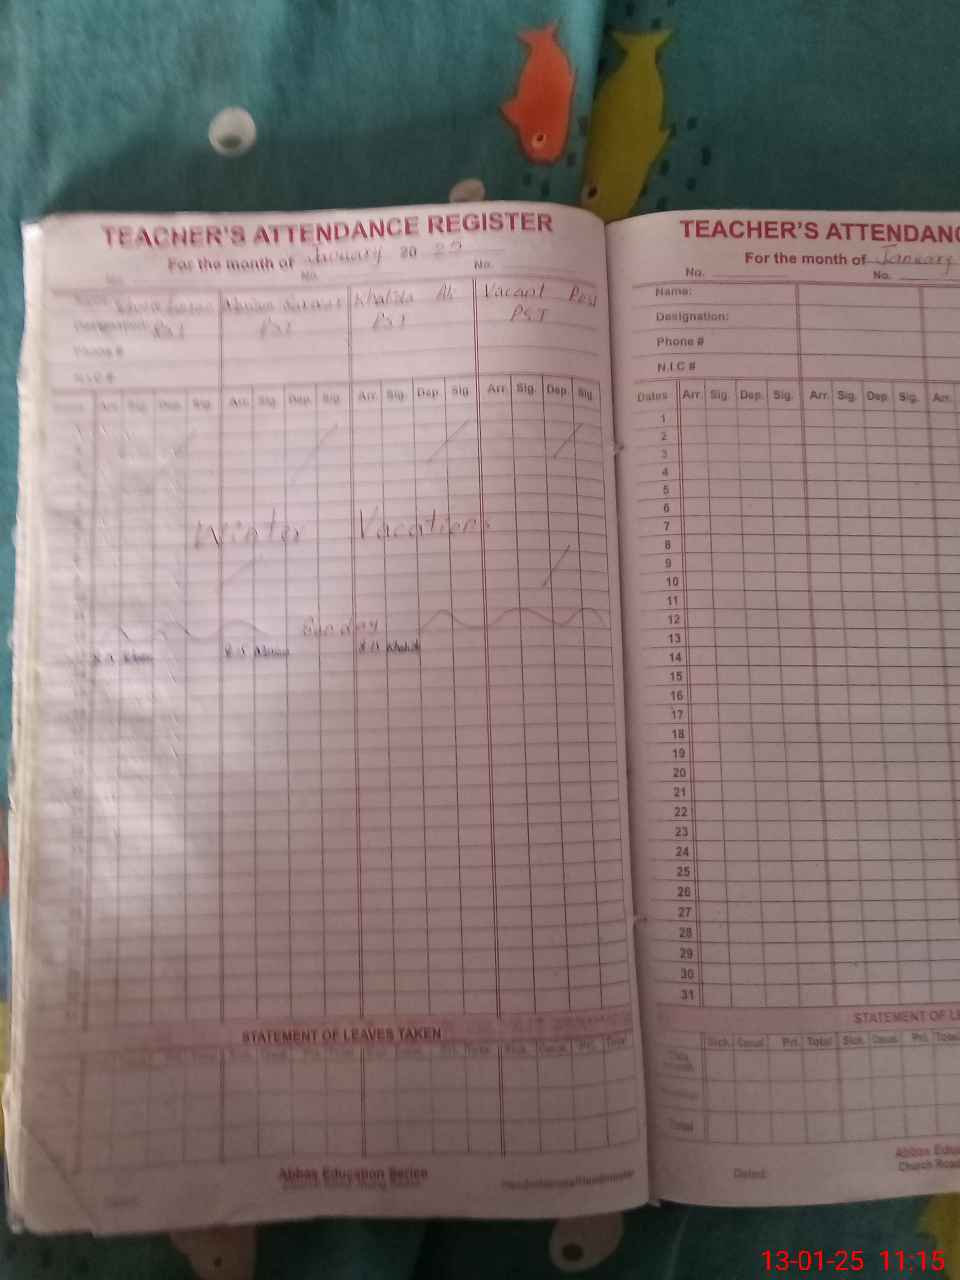 TEACHER'S ATTENDANCE REGISTER
For the month of January 20
No. No.
Khalida Ali Vacant Post
PST PST PST PST
Phone #
N.I.C #
Arr. Sig. Dep. Sig. Arr. Sig. Dep. Sig. Arr. Sig. Dep. Sig. Arr. Sig. Dep. Sig.
Winter Vacations
Sunday
STATEMENT OF LEAVES TAKEN
Abbas Education Series
TEACHER'S ATTENDANC
For the month of January
No. No.
Name:
Designation:
Phone #
N.I.C #
Dates Arr. Sig. Dep. Sig. Arr. Sig. Dep. Sig. Arr.
1
2
3
4
5
6
7
8
9
10
11
12
13
14
15
16
17
18
19
20
21
22
23
24
25
26
27
28
29
30
31
STATEMENT OF LE
Sick. Casual Pri. Total Sick. Casual Pri. Total
Total
Abbas Educ
Church Road
Dated:
13-01-25 11:15